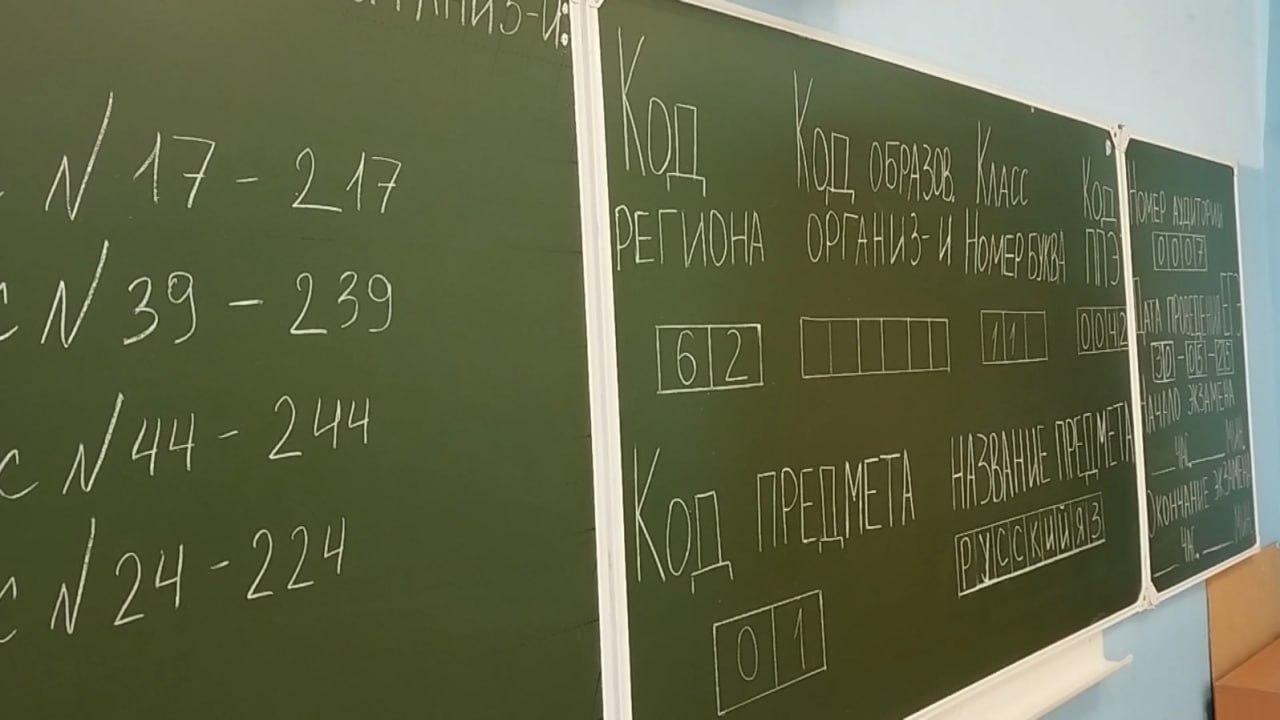 ОРГАНИЗ-И:
№ 17 - 217
С № 39 - 239
С № 44 - 244
С № 24 - 224
КОД РЕГИОНА
62
КОД ОБРАЗОВ. ОРГАНИЗ-И
КЛАСС
НОМЕР БУКВА
11
КОД ППЭ
0042
КОД ПРЕДМЕТА
01
НАЗВАНИЕ ПРЕДМЕТА
РУССКИЙ ЯЗ
НОМЕР АУДИТОРИИ
0007
ДАТА ПРОВЕДЕНИЯ ЕГЭ
30-05-25
НАЧАЛО ЭКЗАМЕНА
__ ЧАС. __ МИН.
ОКОНЧАНИЕ ЭКЗАМЕНА
__ ЧАС. __ МИН.